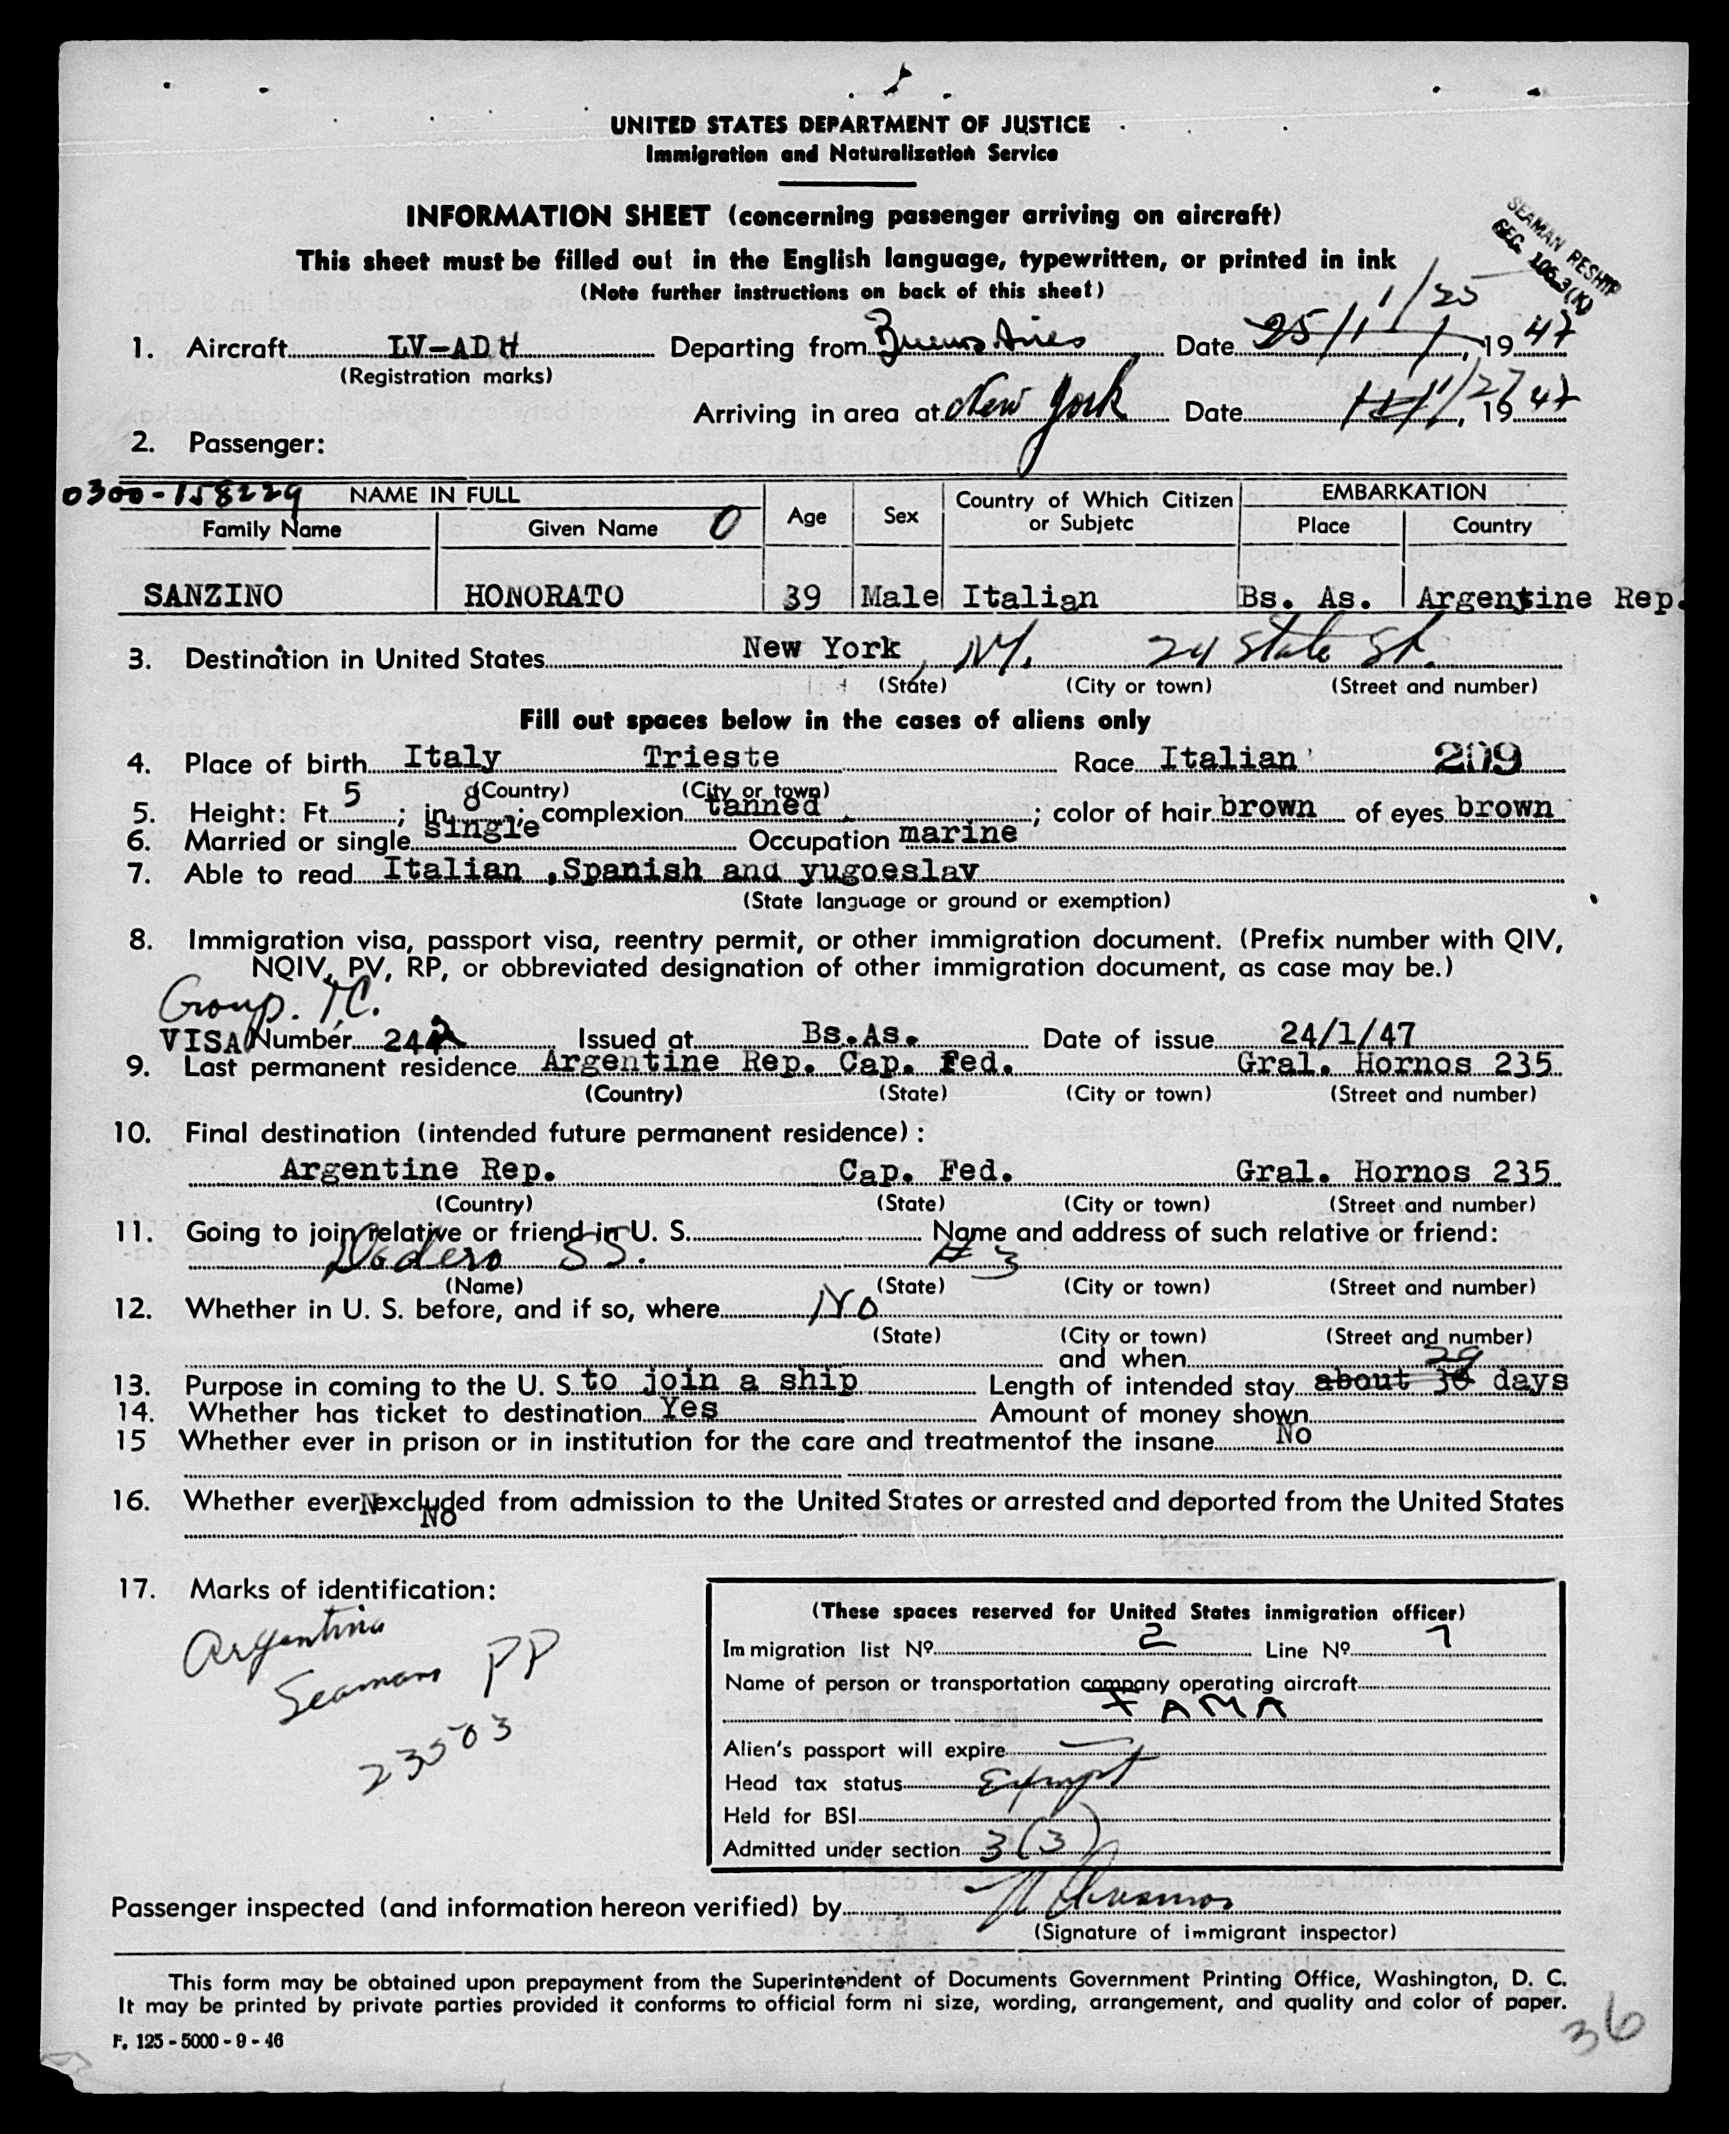 UNITED STATES DEPARTMENT OF JUSTICE
Immigration and Naturalization Service
INFORMATION SHEET (concerning passenger arriving on aircraft)
SEAMAN RESHIP
SEC. 106.3(K)
This sheet must be filled out in the English language, typewritten, or printed in ink
(Note further instructions on back of this sheet)
1/25
1. Aircraft LV-ADH Departing from Buenos Aires Date 25/1/, 1947
(Registration marks)
Arriving in area at New York Date 1/27, 1947
2. Passenger:
0300-158229 NAME IN FULL Age Sex Country of Which Citizen or Subjetc EMBARKATION
Family Name Given Name O Place Country
SANZINO HONORATO 39 Male Italian Bs. As. Argentine Rep.
3. Destination in United States New York, NY. 24 State St.
(State) (City or town) (Street and number)
Fill out spaces below in the cases of aliens only
4. Place of birth Italy Trieste Race Italian 209
(Country) (City or town)
5. Height: Ft. 5; in. 8; complexion tanned; color of hair brown of eyes brown
6. Married or single single Occupation marine
7. Able to read Italian ,Spanish and yugoeslav
(State language or ground or exemption)
8. Immigration visa, passport visa, reentry permit, or other immigration document. (Prefix number with QIV,
NQIV, PV, RP, or obbreviated designation of other immigration document, as case may be.)
Group. T.C.
VISA Number 2442 Issued at Bs.As. Date of issue 24/1/47
9. Last permanent residence Argentine Rep. Cap. Fed. Gral. Hornos 235
(Country) (State) (City or town) (Street and number)
10. Final destination (intended future permanent residence):
Argentine Rep. Cap. Fed. Gral. Hornos 235
(Country) (State) (City or town) (Street and number)
11. Going to join relative or friend in U. S. Name and address of such relative or friend:
Dodero SS. #3
(Name) (State) (City or town) (Street and number)
12. Whether in U. S. before, and if so, where No
(State) (City or town) (Street and number)
and when
13. Purpose in coming to the U. S. to join a ship Length of intended stay about 30 29 days
14. Whether has ticket to destination Yes Amount of money shown
15 Whether ever in prison or in institution for the care and treatmentof the insane No
16. Whether ever excluded from admission to the United States or arrested and deported from the United States
No
17. Marks of identification:
Argentina
Seamans PP
23503
(These spaces reserved for United States inmigration officer)
Immigration list Nº 2 Line Nº 7
Name of person or transportation company operating aircraft
FAMA
Alien's passport will expire
Head tax status Exempt
Held for BSI
Admitted under section 3(3)
Passenger inspected (and information hereon verified) by
(Signature of immigrant inspector)
This form may be obtained upon prepayment from the Superintendent of Documents Government Printing Office, Washington, D. C.
It may be printed by private parties provided it conforms to official form ni size, wording, arrangement, and quality and color of paper.
F. 125 - 5000 - 9 - 46
36